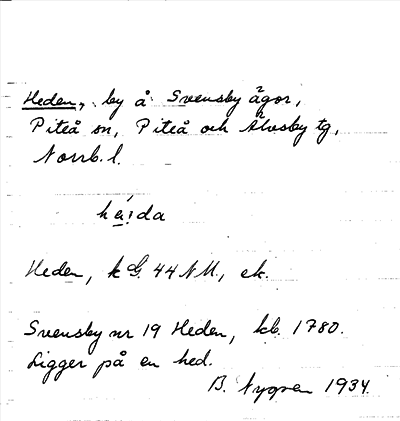 Heden, by å Svensby ägor,
Piteå sn, Piteå och Älvsby tg,
Norrb. l.
Heden, k G. 44 NU., ek.
Svensby nr 19 Heden, kb. 1780.
Ligger på en hed.
B. Nygren 1934